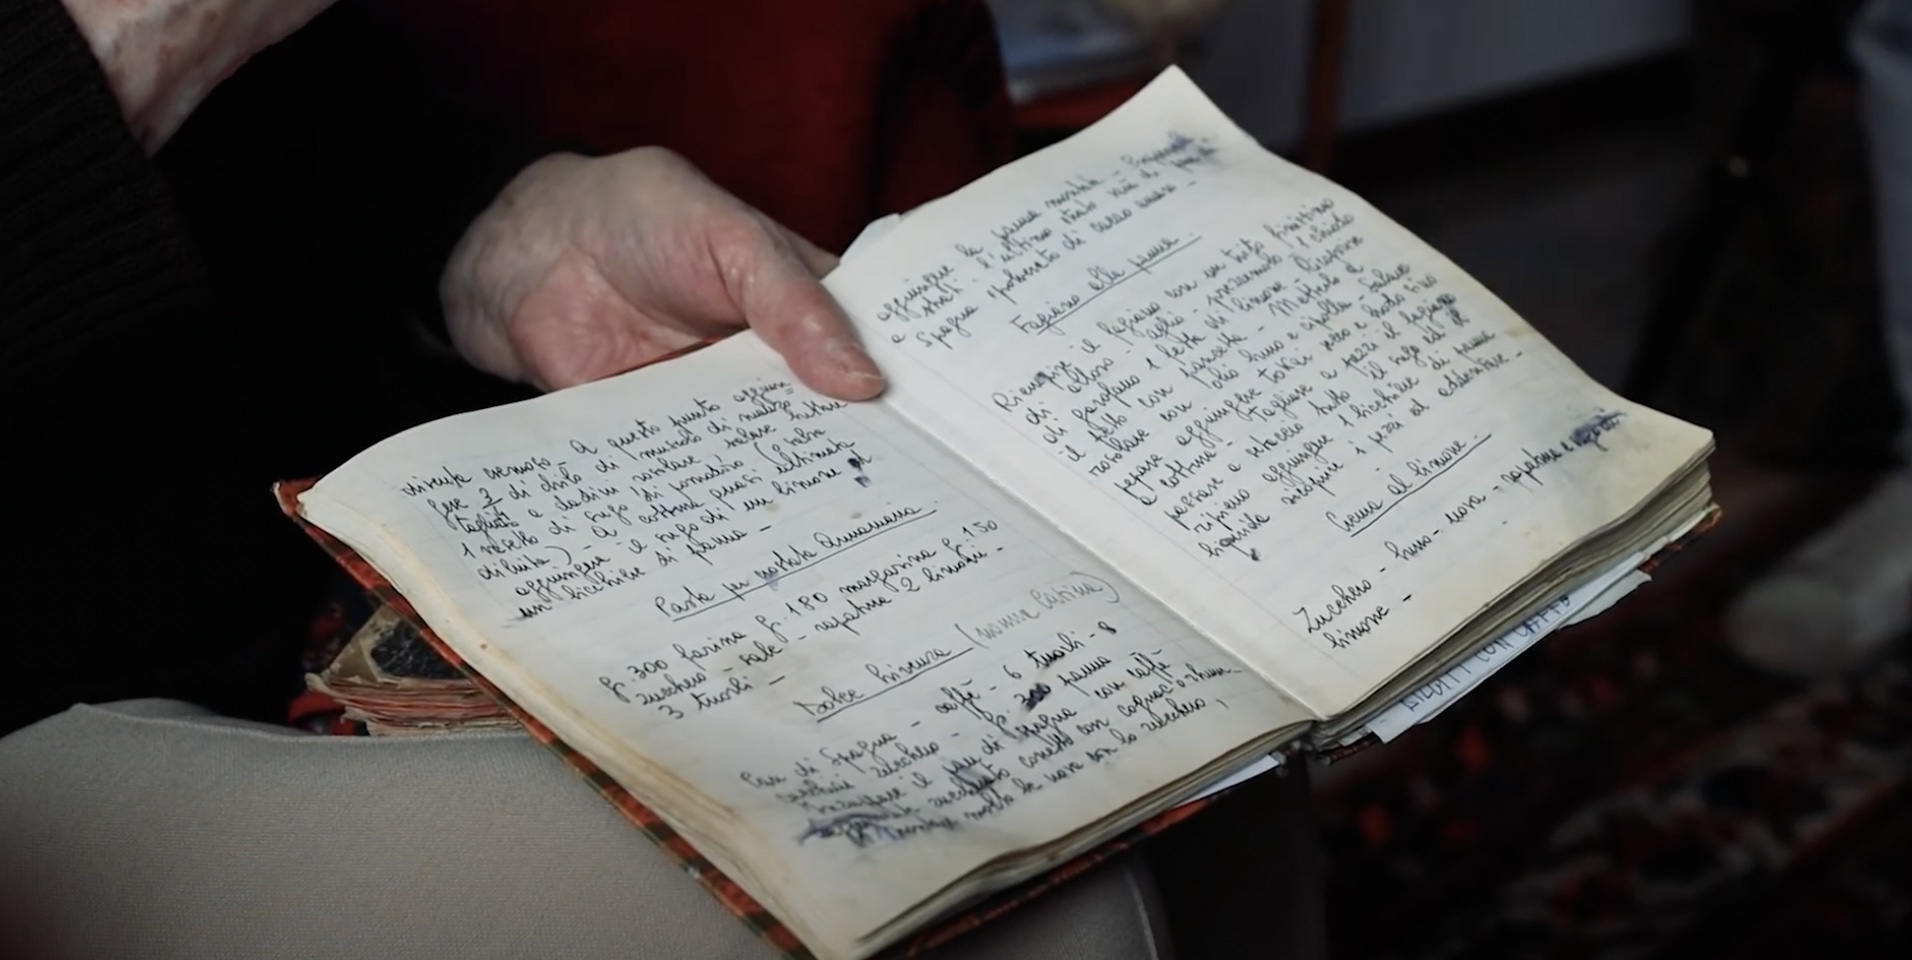 diventa cremoso - A questo punto aggiun=
gere 3/4 di chilo di muscolo di maiale
tagliato a dadini rosolare e salare bastare
1 mestolo di sugo di pomodoro (salsa
diluita) - A cottura quasi ultimata
aggiungere il sugo di un limone
un bicchiere di panna -
Pasta per crostata Annamaria
gr. 300 farina gr. 180 margarina gr. 150
zucchero - sale - rapatura 2 limoni -
3 tuorli -
Dolce Svizzera (nonna Catina)
Pan di Spagna - caffè - 6 tuorli - 8
zucchero - gr. 300 panna
inzuppare il pan di Spagna con caffè
zuccherato corretto con cognac o rhum
molto le uova con lo zucchero,
aggiungere la panna montata -
a strati - l'ultimo strato sia di pan di
Spagna spolverato di cacao amaro -
Fagiano alla panna
Riempire il fagiano con un trito finissimo
di alloro - aglio - prezzemolo 1 chiodo
di garofano 1 fetta di limone - Ricoprire
il petto con pancetta - Metterlo a
rosolare con olio burro e cipolla - Salare
pepare aggiungere Tokai secco e brodo fino
a cottura - Tagliare a pezzi il fagiano
passare a setaccio tutto il sugo ed il
ripieno aggiungere 1 bicchiere di panna
liquida unire i pezzi ed addensare -
Crema al limone -
Zucchero - burro - uova - rapatura e
limone -
CON CAFFÈ